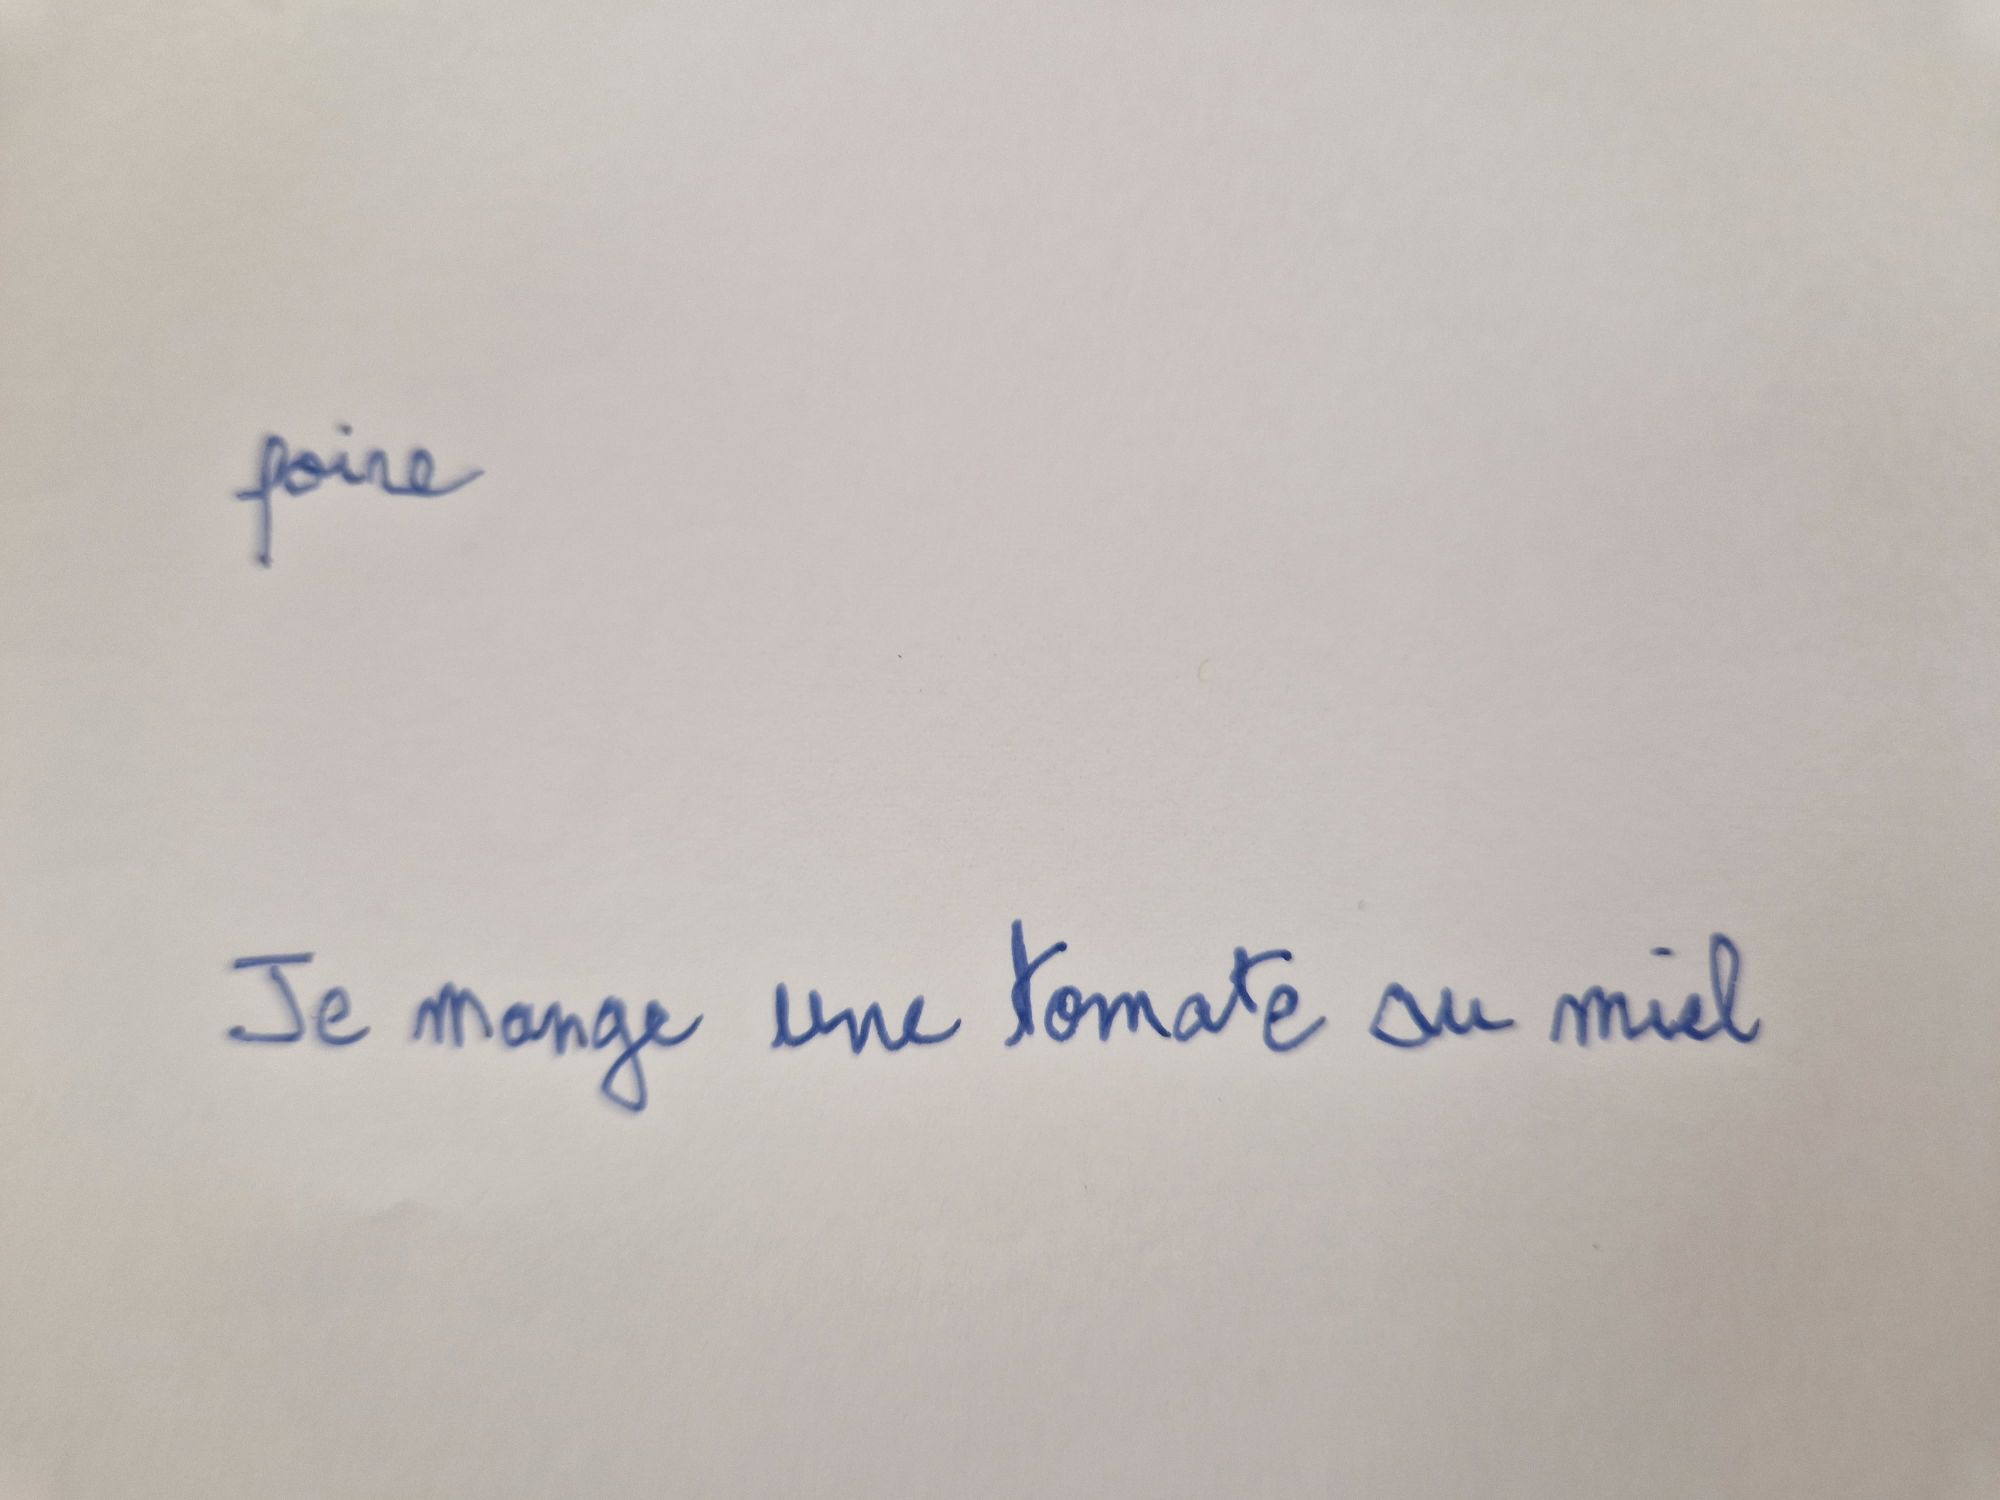 poire
Je mange une tomate au miel